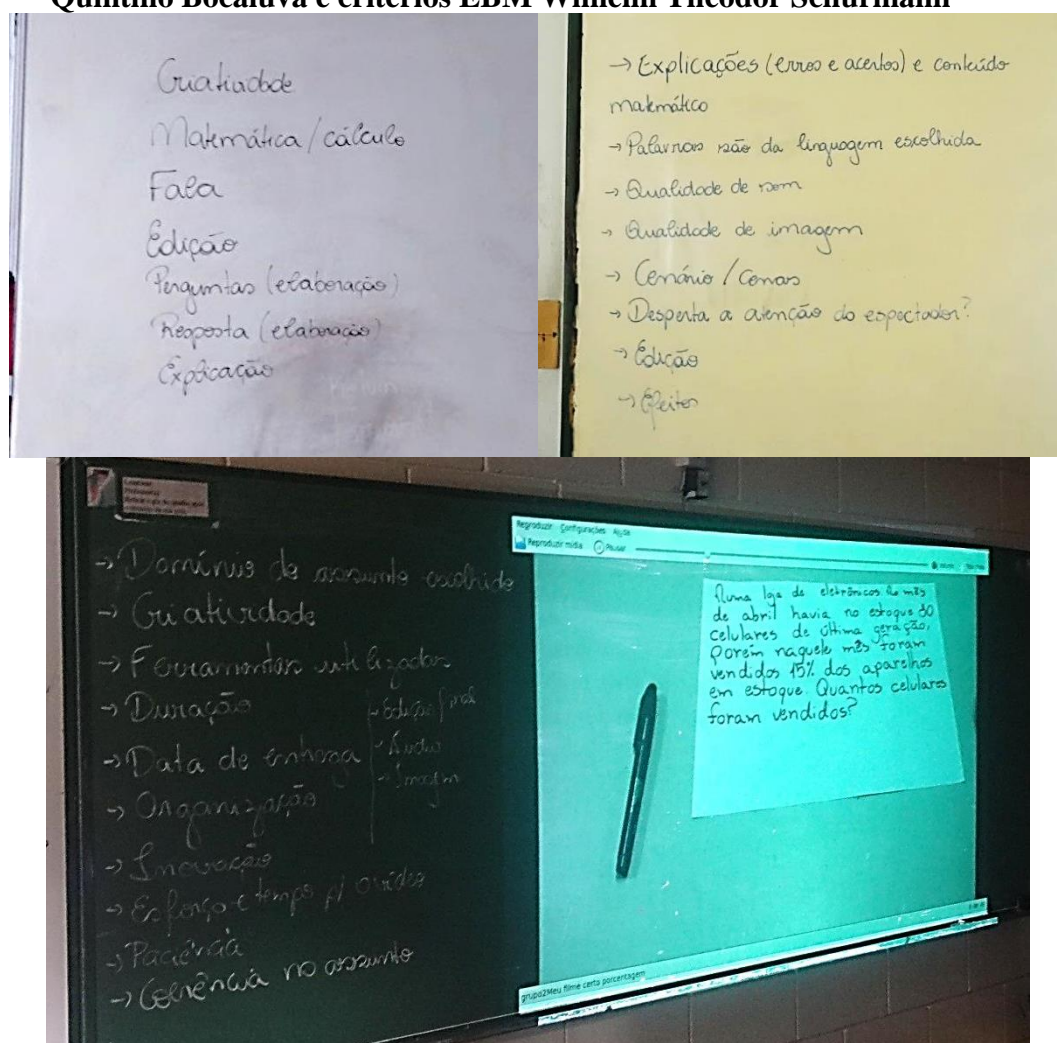 Quintino Bocaiúva e critérios EBM Wilhelm Theodor Schürmann
Criatividade
Matemática / cálculo
Fala
Edição
Perguntas (elaboração)
Resposta (elaboração)
Explicação
→ Explicações (erros e acertos) e conteúdo
matemático
→ Palavras são da linguagem escolhida
→ Qualidade de som
→ Qualidade de imagem
→ Cenário / Cenas
→ Desperta a atenção do espectador?
→ Edição
→ Efeitos
→ Domínio de assunto escolhido
→ Criatividade
→ Ferramentas utilizadas
→ Duração
→ Data de entrega
→ Organização
→ Inovação
→ Esforço e tempo p/ o vídeo
→ Paciência
→ Coerência no assunto
- Edição final
- Áudio
- Imagem
Reproduzir Configurações Ajuda
Reproduzir mídia Pausar
Numa loja de eletrônicos no mês
de abril havia no estoque
celulares de última geração,
porém naquele mês foram
vendidos 15% dos aparelhos
em estoque. Quantos celulares
foram vendidos?
grupo2Meu filme certo porcentagem